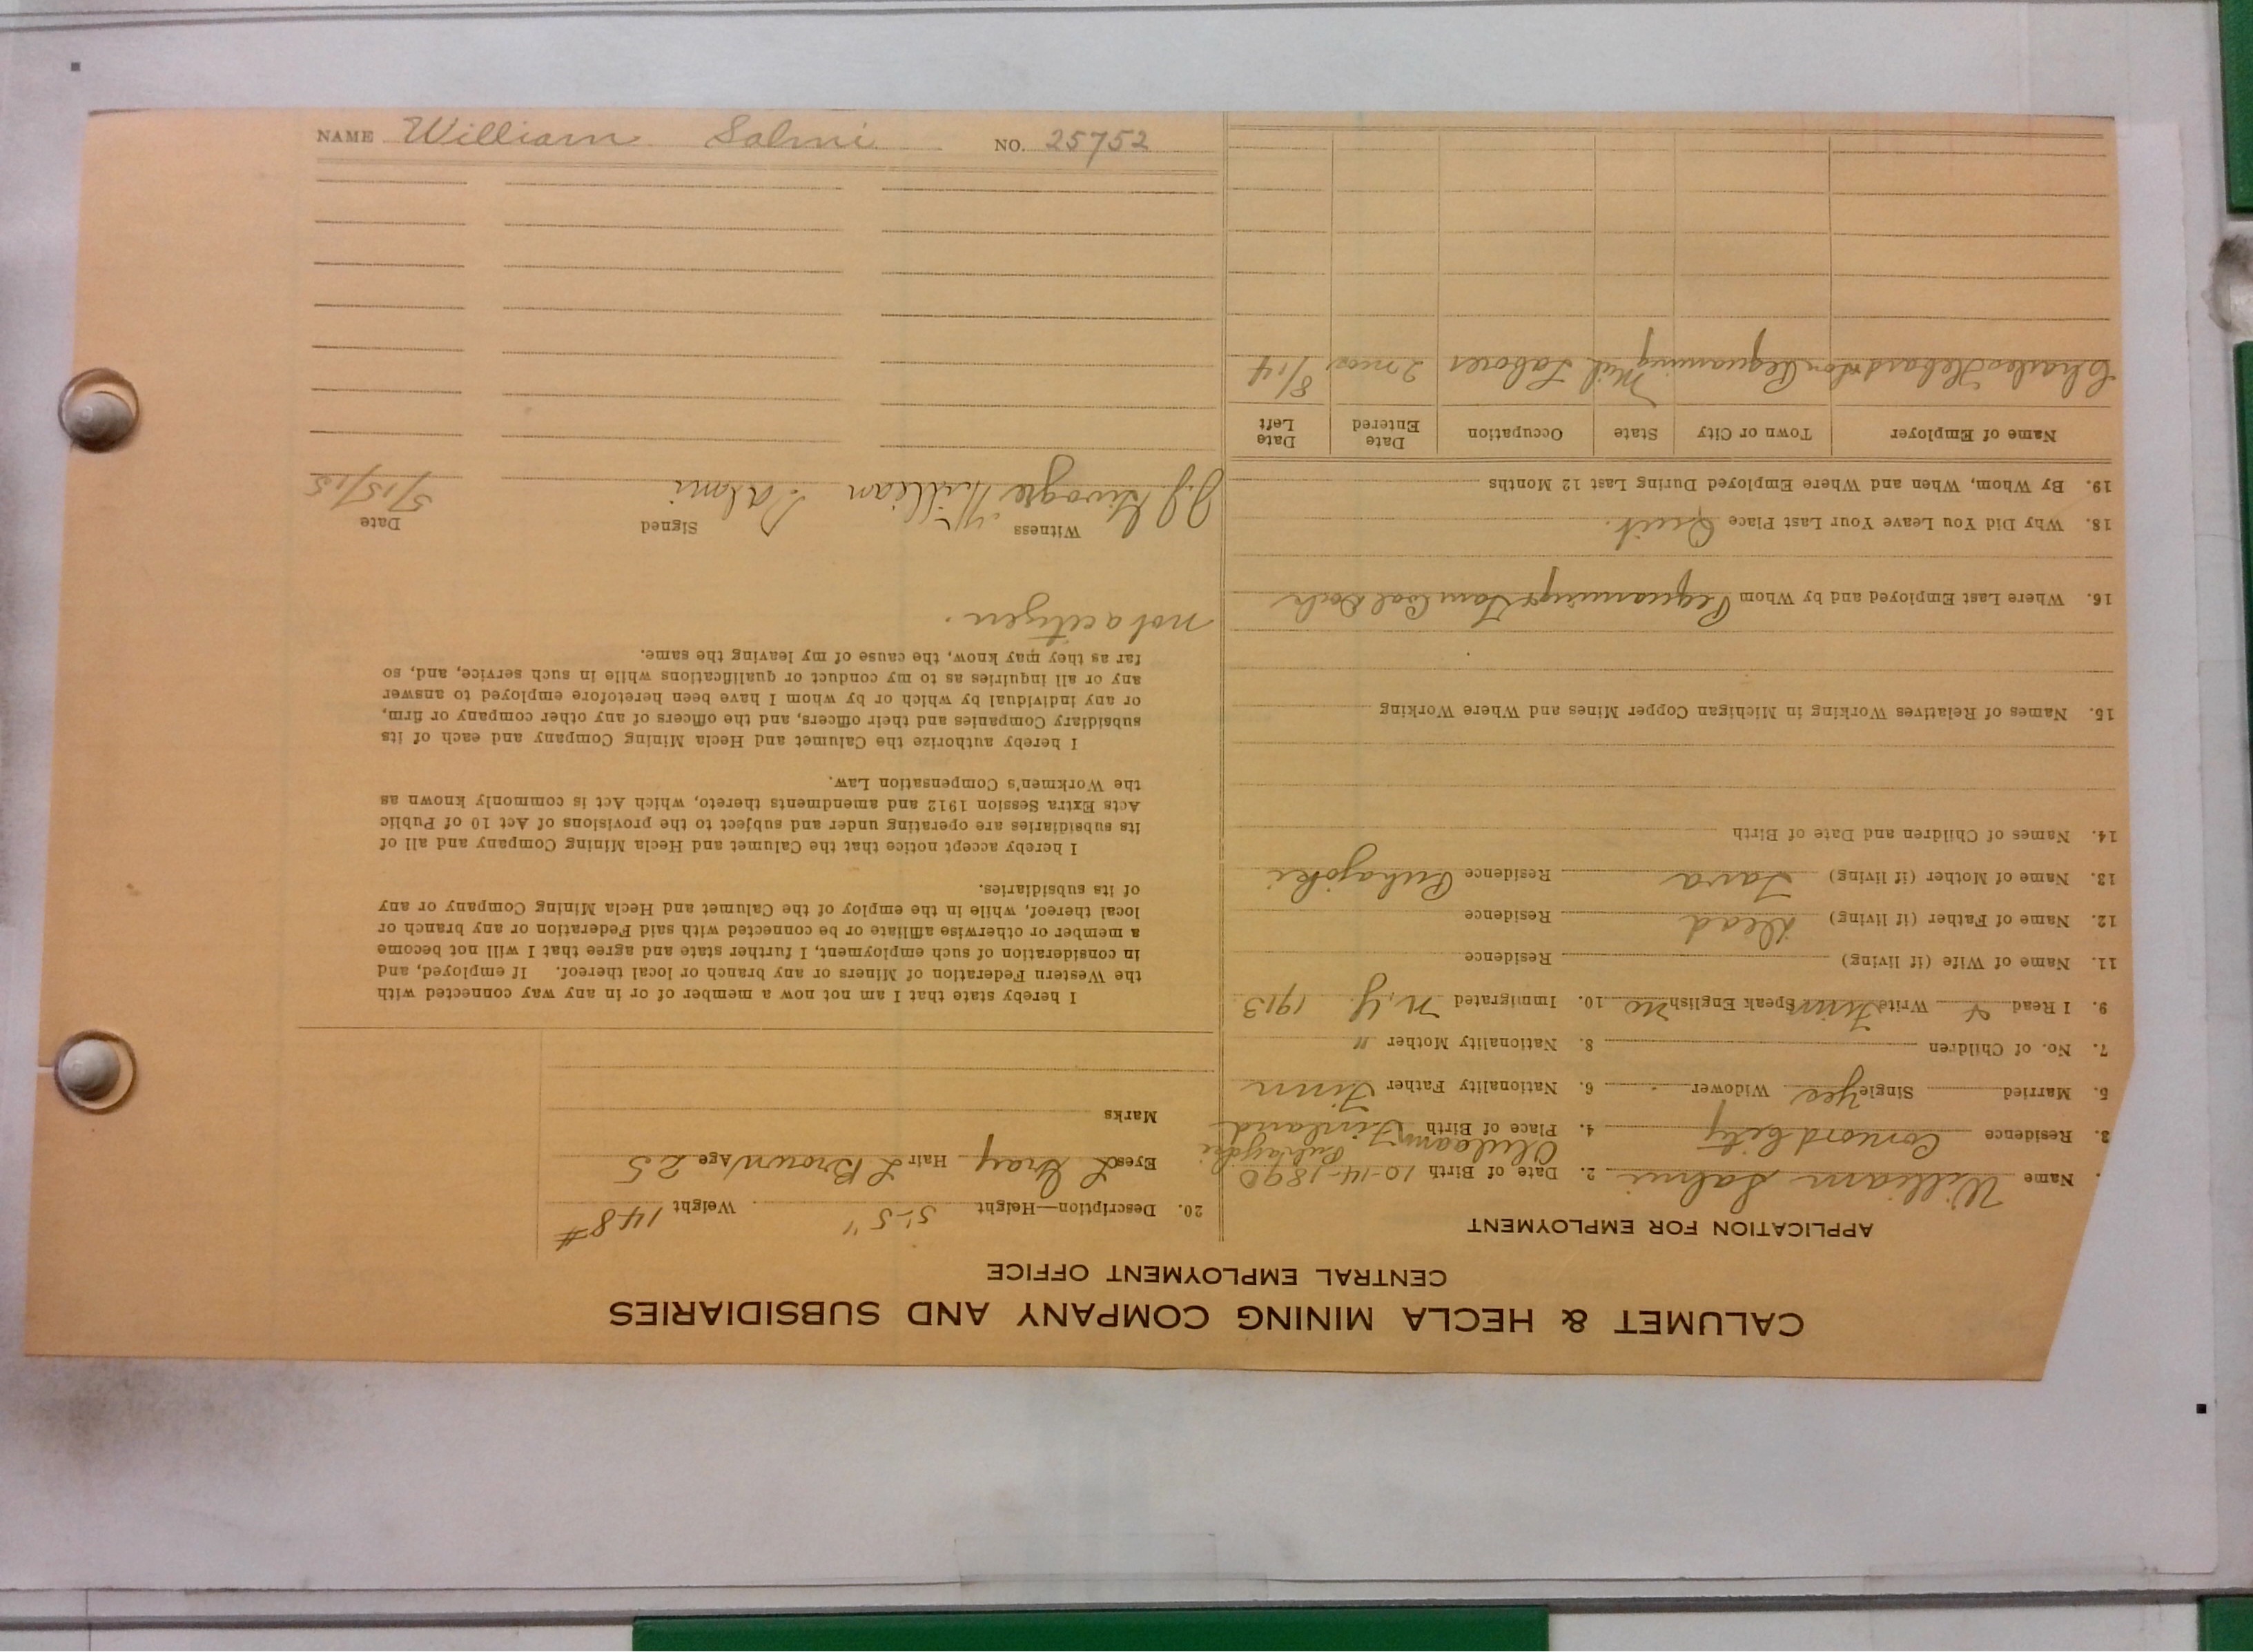 NAME William Salmi NO. 25752
CALUMET & HECLA MINING COMPANY AND SUBSIDIARIES
CENTRAL EMPLOYMENT OFFICE
APPLICATION FOR EMPLOYMENT
Name William Salmi 2. Date of Birth 10-14-1890
3. Residence Concord City 4. Place of Birth Finland
5. Married Single Yes Widower 6. Nationality Father Finn
7. No. of Children 8. Nationality Mother "
9. I Read & Write Finn Speak English no 10. Immigrated N.Y. 1913
11. Name of Wife (if living) Residence
12. Name of Father (if living) Dead Residence
13. Name of Mother (if living) Residence Puhajoki
14. Names of Children and Date of Birth
15. Names of Relatives Working in Michigan Copper Mines and Where Working
16. Where Last Employed and by Whom Pequaming Coal Dock
18. Why Did You Leave Your Last Place Quit.
19. By Whom, When and Where Employed During Last 12 Months
Name of Employer Town or City State Occupation Date Entered Date Left
Charles Hebard & Son Pequaming Mich Laborer 2 mos 8/14
20. Description—Height 5'-5" Weight 148#
Eyes L Gray Hair L Brown Age 25
Marks
I hereby state that I am not now a member of or in any way connected with
the Western Federation of Miners or any branch or local thereof. If employed, and
in consideration of such employment, I further state and agree that I will not become
a member or otherwise affiliate or be connected with said Federation or any branch or
local thereof, while in the employ of the Calumet and Hecla Mining Company or any
of its subsidiaries.
I hereby accept notice that the Calumet and Hecla Mining Company and all of
its subsidiaries are operating under and subject to the provisions of Act 10 of Public
Acts Extra Session 1912 and amendments thereto, which Act is commonly known as
the Workmen's Compensation Law.
I hereby authorize the Calumet and Hecla Mining Company and each of its
subsidiary Companies and their officers, and the officers of any other company or firm,
or any individual by which or by whom I have been heretofore employed to answer
any or all inquiries as to my conduct or qualifications while in such service, and, so
far as they may know, the cause of my leaving the same.
not a citizen.
Witness Signed Date
William Salmi 5/15/15